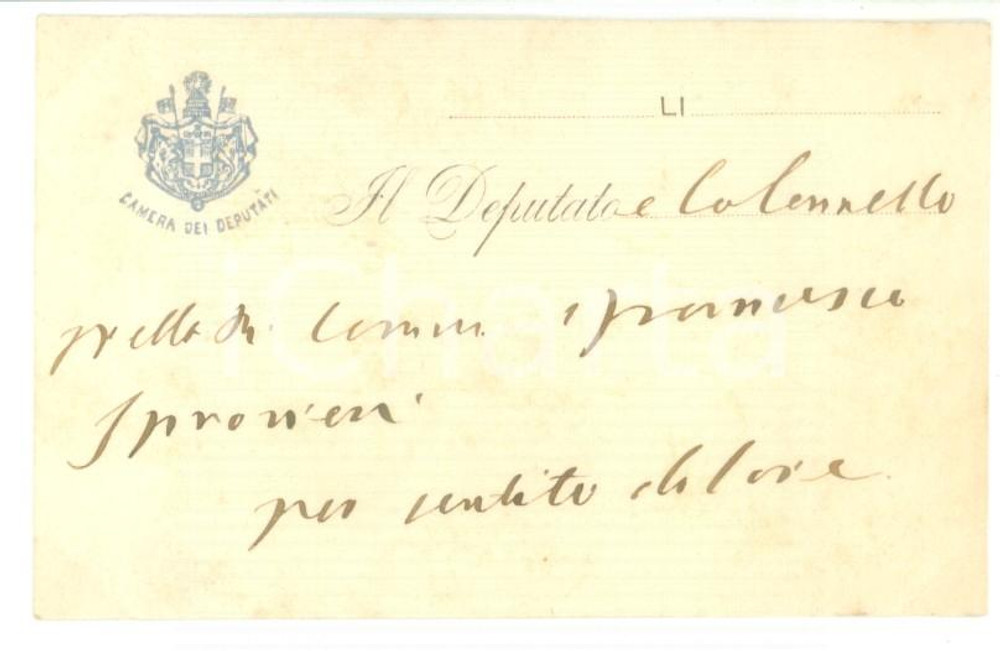 LI
CAMERA DEI DEPUTATI
Il Deputato e Colonnello
Comm. Francesco
Sprovieri
per sentito dolore
iCharta